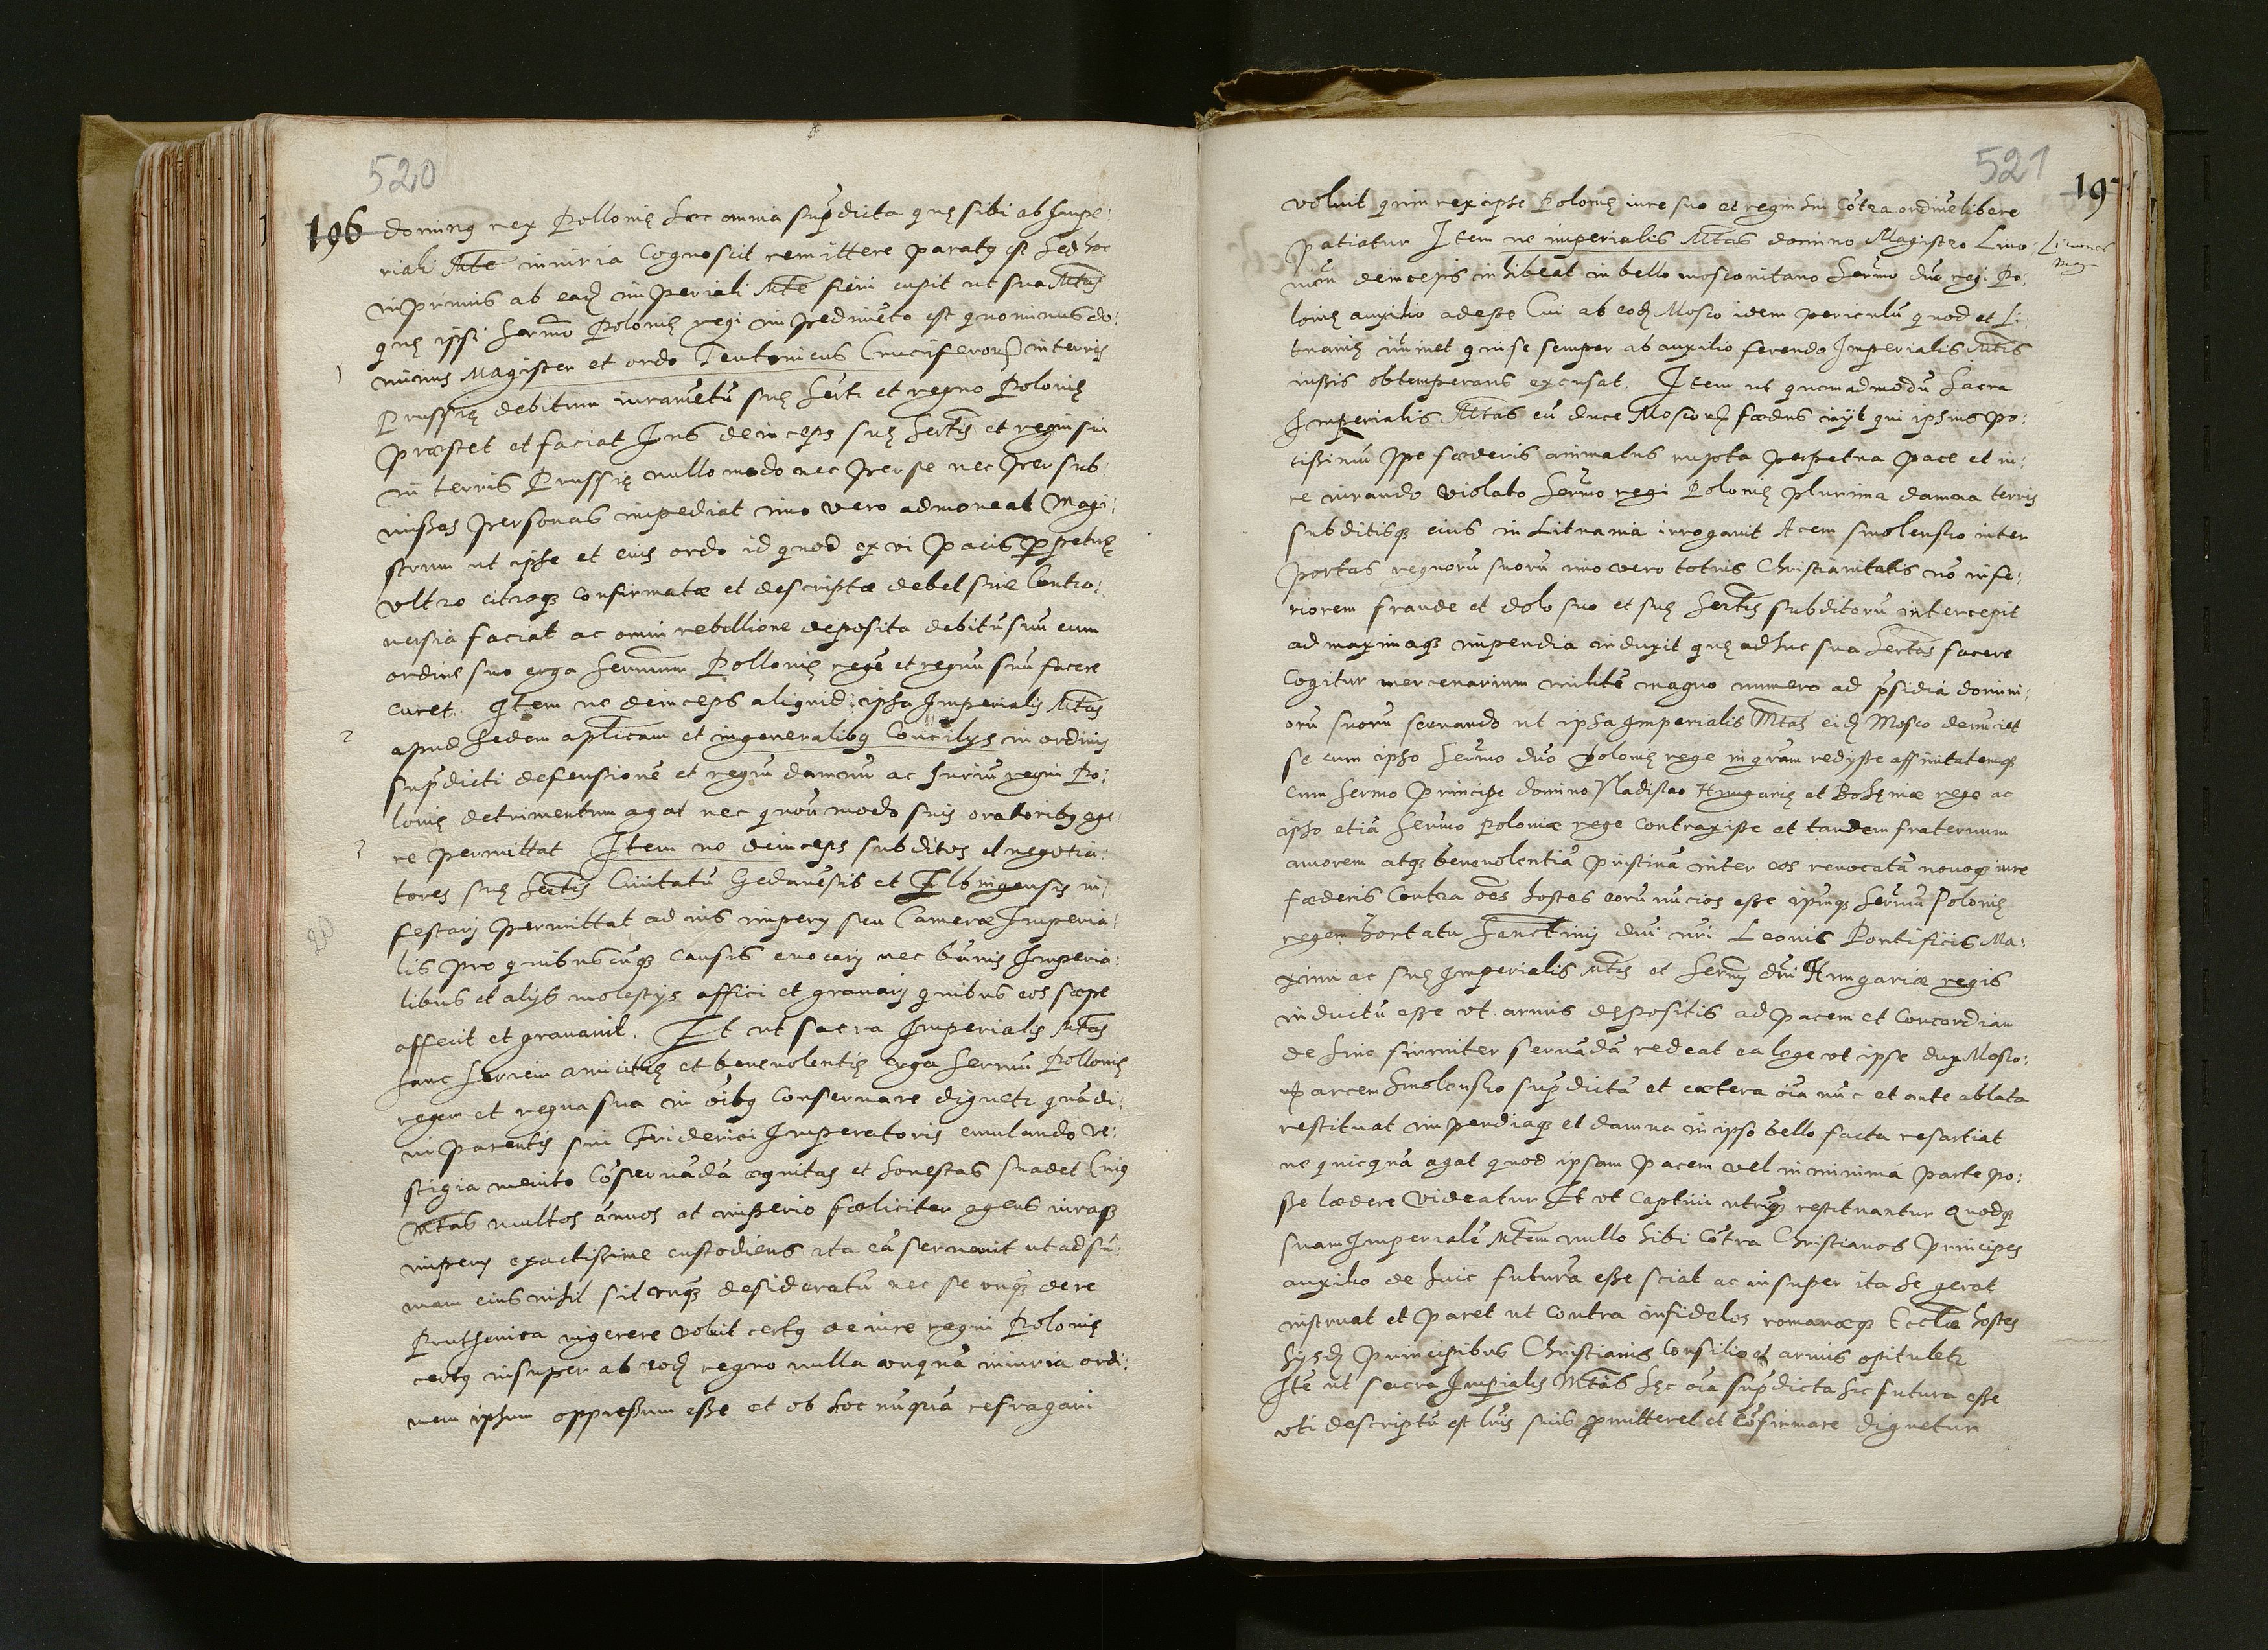 520
196
dominus rex Pollonię hæc omnia supradicta quę sibi ab Impe:
riali Mte iniuria cognoscit remittere paratus est Sed hoc
inprimis ab eadem imperiali Mte fieri cupit ut sua Mtas
quę ipsi Sermo Polonię regi impedimēto est quominus do:
minus Magister et ordo Teutonicus Cruciferorum in terris
Prussię debitum iuramētū suę Serti et regno Polonię
præstet et faciat Ius deinceps suę Sertis et regni sui
in terris Prussię nullo modo nec per se nec per sub:
missas personas impediat imo vero admoneat Magi:
strum ut ipse et eius ordo id quod ex vi pacis perpetuę
vltro citroque confirmatæ et descriptæ debet sine Contro:
uersia faciat ac omni rebellione deposita debitū suū cum
ordine suo erga Sermum Pollonię regē et regnū suū facere
curet. Item ne deinceps aliquid ipsa Imperialis Mtas
apud Sedem aplicam et in generalibus Concilys in ordinis
supradicti defensionē et regni damnū ac Iuriū regni Po:
lonię detrimentum agat nec quouis modo suis oratoribus age:
re permittat Item ne deinceps subditos et negotia:
tores suę Sertis Ciuitatū Gedanēsis et Elbingensis in:
festari permittat ad ius impery seu Cameræ Imperia:
lis pro quibuscūque causis euocary nec bannis Imperia:
libus et alys molestys affici et grauary quibus eos sæpe
affecit et grauauit. Et ut sacra Imperialis Mtas
hanc seriem amicitię et beneuolentię erga Sermū Pollonię
regem et regna sua in oībus conseruare dignetur quā di:
ui parentis sui Friderici Imperatoris emulando ve:
stigia merito Cōseruādā æquitas et honestas suadet Cuius
Mtas multos annos et imperio fœliciter agens iuraque
impery exactissime custodiens ita eā seruauit ut ad su:
mam eius nihil sit vnque desideratū nec se vnque de re
Pruthenica ingerere voluit certus de iure regni Polonię
certus insuper ab eodem regno nulla vnquā iniuria ordi:
nem ipsum oppressum esse et ob hoc nuquā refragari
521
197
voluit quin rex ipse Polonię iure suo et regni sui Cōtra ordinē libere
patiatur Item ne imperialis Mtas domino Magistro Liuo:
Liuoniæ
Mag
nicū deinceps inhibeat in bello moscouitano Sermo dno regi Po:
lonię auxilio adesse Cui ab eodem Mosco idem periculū quod et Li:
tuanię iminet qui se semper ab auxilio ferendo Imperialis Mtis
iussis obtemperans excusat. Item ut quemadmodū Sacra
Imperialis Mtas cū duce Moscorum fœdus inijt qui ipsius po:
tissimū spe fœderis animatus rupta perpetua pace et iu:
re iurando violato Sermo regi Polonię plurima damna terris
subditisque eius in Lituania irrogauit Arcem smolensko inter
portas regnorū suorū imo vero totius Christianitatis nō infe:
riorem fraude et dolo suo et suę Sertis subditorū intercepit
ad maximaque impendia induxit quę adhuc sua Sertas facere
Cogitur mercenarium militē magno numero ad præsidiā domini:
orū suorū seruando ut ipsa Imperialis Mtas eidem Mosco denūciet
se cum ipso Sermo dno Polonię rege in gram redysse affinitatemque
cum Sermo Principe domino Vladislao Hungarię et Bohęmiæ rege ac
ipso etiā Sermo Poloniæ rege contraxisse et tandem fraternum
amorem atque beneuolentiā pristinā inter eos reuocatā nouoque iure
fœderis Contra oēs hostes eorū nūcios esse ipsumque Sermū Polonię
regem hortatu Sanctimi dni nri Leonis Pontificis Ma:
ximi ac suę Imperialis Mtis et Sermi dni Hungariæ regis
inductū esse vt armis depositis ad pacem et Concordiam
de hinc firmiter seruādā redeat ea lege vt ipse dux Mosco:
rum arcem Smolensko supradictā et cætera oīa nūc et ante ablata
restituat impendiaque et damna in ipso bello facta resartiat
ne quicquā agat quod ipsam pacem vel in minima parte po:
sse lædere videatur Et vt captiui utrinque restituantur Quodque
suam Imperialē Mtem nullo sibi Cōtra Christianos Principes
auxilio de hinc futurā esse sciat ac insuper ita se gerat
instruat et paret ut contra infideles romanæque Eccliæ hostes
hysdem Principibus Christianis Consilio et armis opituletur
Itē ut sacra Imperialis Mtas hęc oīa supradicta sic futura esse
vti descriptū est lris suis promitteret et cōfirmare dignetur